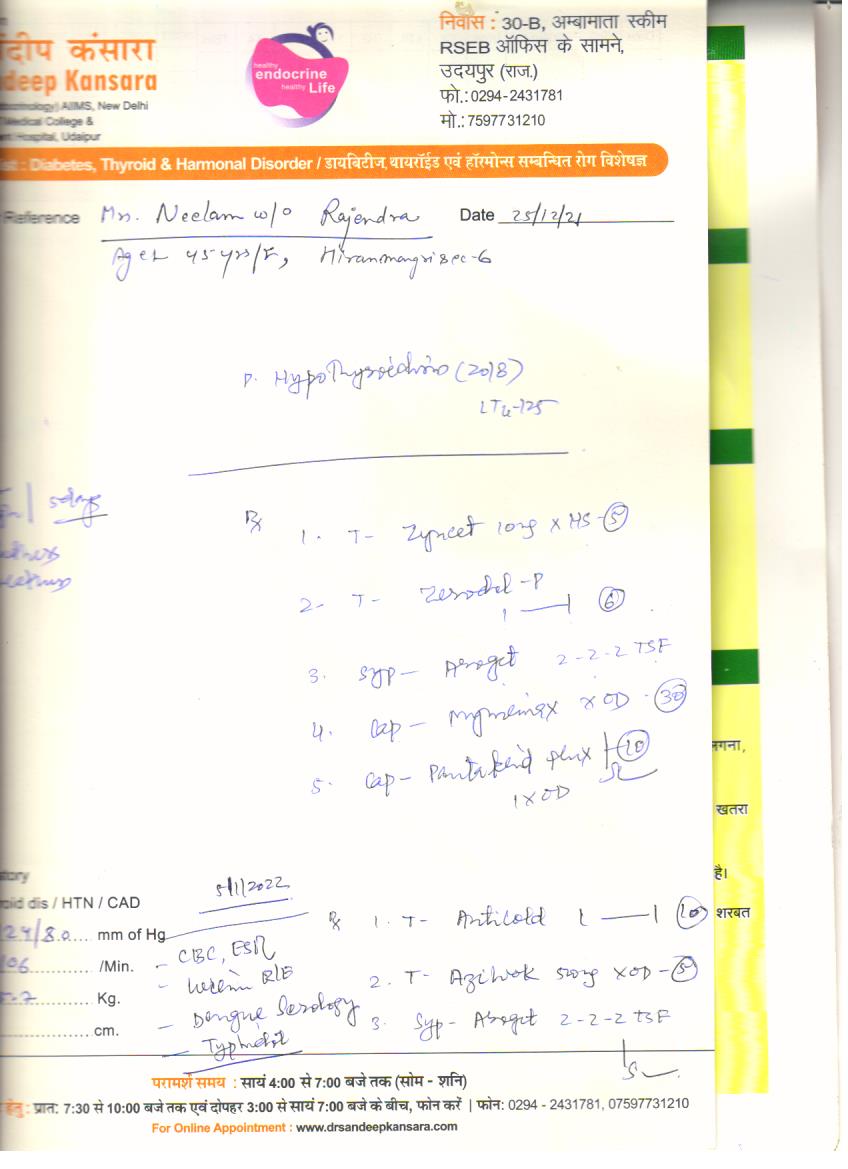 निवास : 30-B, अम्बामाता स्कीम
RSEB ऑफिस के सामने,
उदयपुर (राज.)
फो.:0294-2431781
मो.: 7597731210
दीप कंसारा
deep Kansara
AIIMS, New Delhi
Medical College &
Hospital, Udaipur
healthy
endocrine
healthy Life
: Diabetes, Thyroid & Harmonal Disorder / डायबिटीज, थायरॉईड एवं हॉरमोन्स सम्बन्धित रोग विशेषज्ञ
Reference Mrs. Neelam w/o Rajendra Date 25/12/21
Age 45 yrs/F, Hiranmangri sec-6
Hypothyroidism (2018)
LT4-125
5days
Rx
1. T- Zyncet 10mg x HS-5
2- T- Zerodol-P
1 — 1 6
3. Syp- Ascogit 2-2-2 TSF
4. Cap- x OD - 30
5. Cap- Pantakind 10
1 x OD
लगना,
खतरा
है।
शरबत
5/1/2022
roid dis / HTN / CAD
124/80 mm of Hg
106 /Min.
Kg.
cm.
- CBC, ESR
- Urine R/E
- Dengue Serology
- Typhidot
Rx 1. T- Anticold 1 — 1 10
2. T- 500mg x OD - 5
3. Syp- Ascogit 2-2-2 TSF
परामर्श समय : सायं 4:00 से 7:00 बजे तक (सोम - शनि)
हेतु : प्रात: 7:30 से 10:00 बजे तक एवं दोपहर 3:00 से सायं 7:00 बजे के बीच, फोन करें | फोन: 0294 - 2431781, 07597731210
For Online Appointment : www.drsandeepkansara.com